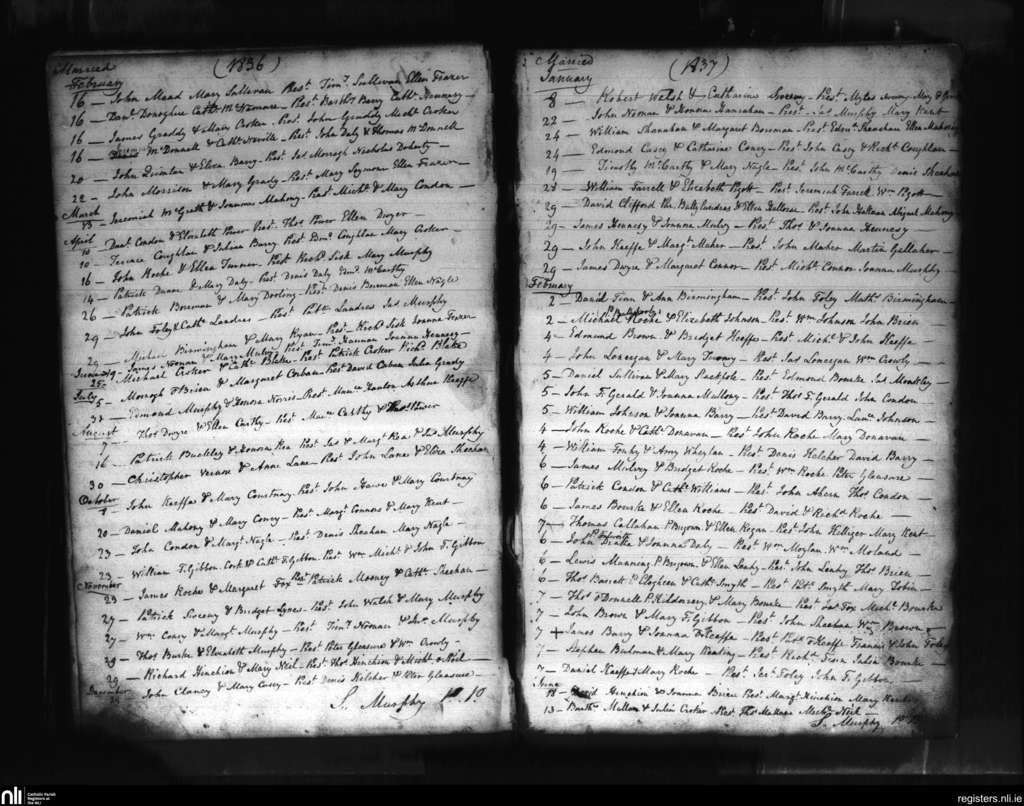 Married (1836)
February
16 — John Mead Mary Sullivan Rest. Timy. Sullivan Ellen Frazer
16 — Danl. Donoghue Cathe. McNamara — Rest. Barthw. Barry Cathe. Hennessy —
16 — James Graddy & Mary Croker Rest. John Graddy Michl. Croker
16 — McDonnell & Cathe. Neville — Rest. John Daly & Thomas McDonnell
20 — John Quinlan & Eliza Barry — Rest. Jas Morrogh Nicholas Doherty —
22 — John Morrison & Mary Grady — Rest. Mary Seymour Ellen Frazer
March
13 — Jeremiah McGrath & Joanna Mahony — Rest. Michl. & Mary Condon —
April
10 — Danl. Condon & Elizabeth Power Rest. Thos Power Ellen Dwyer —
10 — Terence Coughlan & Johana Barry Rest. Coughlan Mary Croker —
16 — John Roche & Ellen Turner — Rest. Richd. Sisk Mary Murphy
14 — Patrick Duane & Mary Daly — Rest. Denis Daly Edmd. McCarthy
26 — Patrick Bowman & Mary Dooling — Rest. Denis Bowman Ellen Nagle
29 — John Foley & Cathe. Landers — Rest. Landers Jas Murphy
29 — Michael Birmingham & Mary Ryan — Rest. Richd. Sisk Joanna Frazer
June 19 — James Noonan & Mary Rest. Timy. Noonan Joanna Hennessy —
25 — Michael Croker & Cathe. Blake — Rest. Patrick Croker Richd. Blake
July
5 — Morogh O'Brien & Margaret Corban — Rest. David Corban Julia Grady
31 — Edmund Murphy & Honora Norris — Rest. Maurice Arthur Keeffe
August
7 — Thos Dwyre & Ellen Carthy — Rest. Maure. Carthy & Thos Power
16 — Patrick Buckley & Honora Rea Rest. Jas & Margt. Rea & Jas Murphy
30 — Christopher Vernon & Anne Lane — Rest. John Lane & Eliza Sheehan
October
1 — John Keeffe & Mary Courtney — Rest. John Hawe & Mary Courtney
20 — Daniel Mahony & Mary Coney — Rest. Margt. Connors & Mary Kent —
23 — John Condon & Margt. Nagle — Rest. Denis Sheehan Mary Nagle —
23 — William F. Gibbon Cork & Cathe. F. Gibbon Rest. Wm. Michl. & John F. Gibbon
November
29 — James Roche & Margaret Fox Rest. Patrick Mooney & Cathe. Sheehan —
27 — Patrick Sweeny & Bridget Lynes — Rest. John Walsh & Mary Murphy
27 — Wm. Coney & Margt. Murphy — Rest. Timy. Noonan & Murphy
29 — Thos Burke & Elizabeth Murphy — Rest. Peter Gleasure & Wm. Crowly —
29 — Richard Hinchion & Mary Neil — Rest. Thos Hinchion & Michl. Neil —
December
— John Clancy & Mary Casey — Rest. Denis Kelcher & Peter Gleasure —
S. Murphy P.P.
Married (1837)
January
8 — Robert Walsh & Catharine — Rest. Myles
22 — John Noonan & Honora Hanrahan — Rest. Jas Murphy Mary Kent
24 — William Shanahan & Margaret Bowman — Rest. Edmd. Shanahan Ellen Mahony
24 — Edmond Casey & Catharine Coney — Rest. John Casey & Richd. Coughlan —
19 — Timothy McCarthy & Mary Nagle — Rest. John McCarthy Denis Sheehan
27 — William Farrell & Elizabeth Pyott — Rest. Jeremiah Farrell Wm. Pyott —
29 — David Clifford Par. Ballylanders & Ellen Halloran — Rest. John Abigail Mahony
29 — James Hennesy & Joanna Mulvy — Rest. Thos & Joanna Hennesy —
29 — John Keeffe & Margt. Maher — Rest. John Maher Martin Gallaher —
29 — James Dwyre & Margaret Connor — Rest. Michl. Connor Joanna Murphy —
February
2 — David Finn & Ann Birmingham — Rest. John Foley Mathw. Birmingham —
2 — Michael Roche & Elizabeth Johnson — Rest. Wm. Johnson John Brien
4 — Edmond Brown & Bridget Keeffe — Rest. Michl. & John Keeffe —
4 — John Lonergan & Mary Twomy — Rest. Jas Lonergan Wm. Crowly —
5 — Daniel Sullivan & Mary Stackpole — Rest. Edmond Bourke Jas Monkley —
5 — John F. Gerald & Joanna Mullony — Rest. Thos F. Gerald John Condon
5 — William Johnson & Joanna Barry — Rest. David Barry Johnson —
4 — John Roche & Cathe. Donavan — Rest. John Roche Mary Donavan —
4 — William & Amy Whaylan — Rest. Denis Kelcher David Barry —
6 — James Mulvey & Bridget Roche — Rest. Wm. Roche Peter Gleasure —
6 — Patrick Condon & Cathe. Williams — Rest. John Ahern Thos Condon —
6 — James Bourke & Ellen Roche — Rest. David & Richd. Roche —
7 — Thomas Callahan P. & Ellen Regan — Rest. John Mary Kent —
6 — John & Joanna Daly — Rest. Wm. Moylan, Wm. Moland —
6 — Lewis Manning P. & Ellen Leahy — Rest. John Leahy Thos Brien —
6 — Thos Barrett P. & Cathe. Smyth — Rest. Smyth Mary Tobin —
7 — Thos O'Donnell P. Kildorrery & Mary Bourke — Rest. Jas Fox Michl. Bourke
7 — John Brown & Mary F. Gibbon — Rest. John Sheehan Wm. Brown —
7 — James Barry & Joanna O'Keeffe — Rest. O'Keeffe Francis & John Foley
7 — Stephen & Mary Keating — Rest. Richd. Julia Bourke —
7 — Daniel Keeffe & Mary Roche — Rest. Foley John F. Gibbon —
June
18 — David Hinchion & Joanna Brien Rest. Margt. Hinchion Mary
13 — Barthw. & Julia Croker Rest. Thos —
S. Murphy P.P.
nli Catholic Parish Registers at the NLI
registers.nli.ie